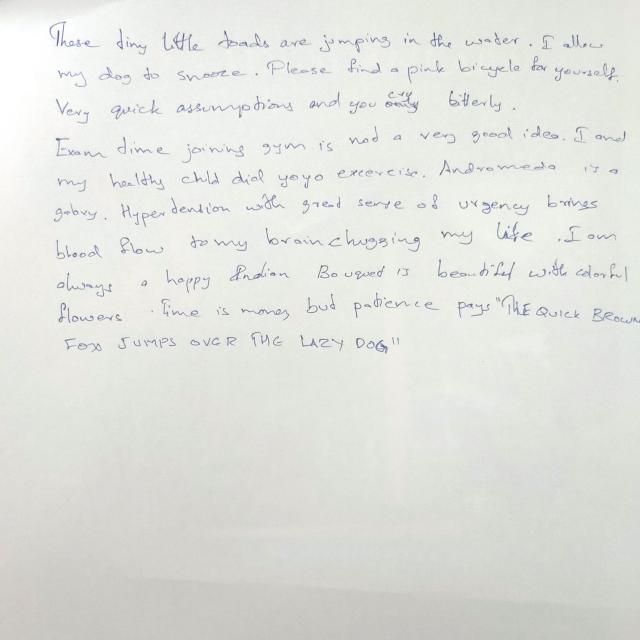 These tiny little toads are jumping in the water. I allow
my dog to snooze. Please find a pink bicycle for yourself.
Very quick assumptions and you cry bitterly.
Exam time joining gym is not a very good idea. I and
my healthy chld did yoyo excercise. Andromeda is a
galaxy. Hypertension with great sense of urgency brings
blood flow to my brain chugging my life. I am
always a happy Indian Bouqued is beautiful with colorful
flowers. Time is money but patience pays "THE QUICK BROWN
FOX JUMPS OVER THE LAZY DOG"